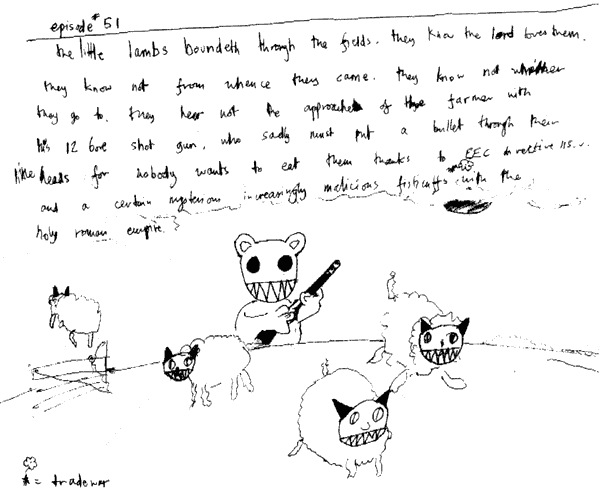 episode # 51
the little lambs boundeth through the fields. they know the lord loves them.
they know not from whence they came. they know not whither
they go to. they hear not the approach of the farmer with
his 12 bore shot gun, who sadly must put a bullet through their
little heads for nobody wants to eat them thanks to EEC directive 115.
and a certain mysterious increasingly malicious fisticuffs with the
holy roman empire.
* = tradewar